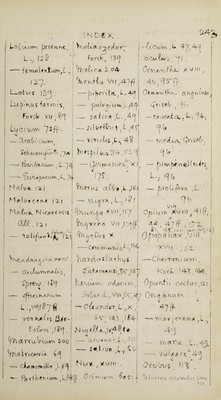 INDEX
243
Lolium perenne,
L., 128
— temulentum, L.,
127.
Lotus 129
Lupinus termis,
Forsk VII, 89
Lycium 72ff
— Arabicum
— Barbarum, L., 74
— Europaeum, L., 74
Malva 121
Malvaceae 121
Malva Nicaensis
All. 121
— rotundifolia, 121
Mandragora XXIV
— autumnalis,
Spreng 189
— officinarum
L., VII, 187ff
— vernalis Ber-
tolon, 189.
Marrubium 200
Matricaria 69
— chamomilla, L., 69
— Parthenium, L., 68
Melia azedar.,
Forsk, 139
Melica 204
Mentha VII, 47ff
— piperita, L., 49
— pulegium, L., 49
— sativa, L., 49
— silvestris, L., 45
— viridis, L., 48
Mespilus
— Germanica,
175
Morus alba, L., 181
— nigra, L., 181
Mungo XVII, 117
Myrrha VII
Myrtus X
— communis, L.,
Nardostachys
Jatamansi, DC, 147
Nerium odorum,
— Oleander, L., X,
65, 183, 184
Nigella,
— arvensis, L., 50
— sativa, L., 50
Nux, XVIII.
Ocimum basi-
licum, L., 47, 49
Oculus 71.
Oenanthe XVIII,
40, 95ff
Oenanthe angulosa,
Griseb, 96
— crocata, L., 94,
96
— media Griseb,
96
— pimpinelloides,
L., 96
— prolifera, L.,
96
Opium XXVIII, 41ff,
Opopanax, VIII,
XVII, 52
— Chironium,
Koch 143, 144
Opuntia coctus, 121
Origanum
47ff
— majorana, L.,
49
— maru, L., 49
— vulgare, 49
Orobus 113